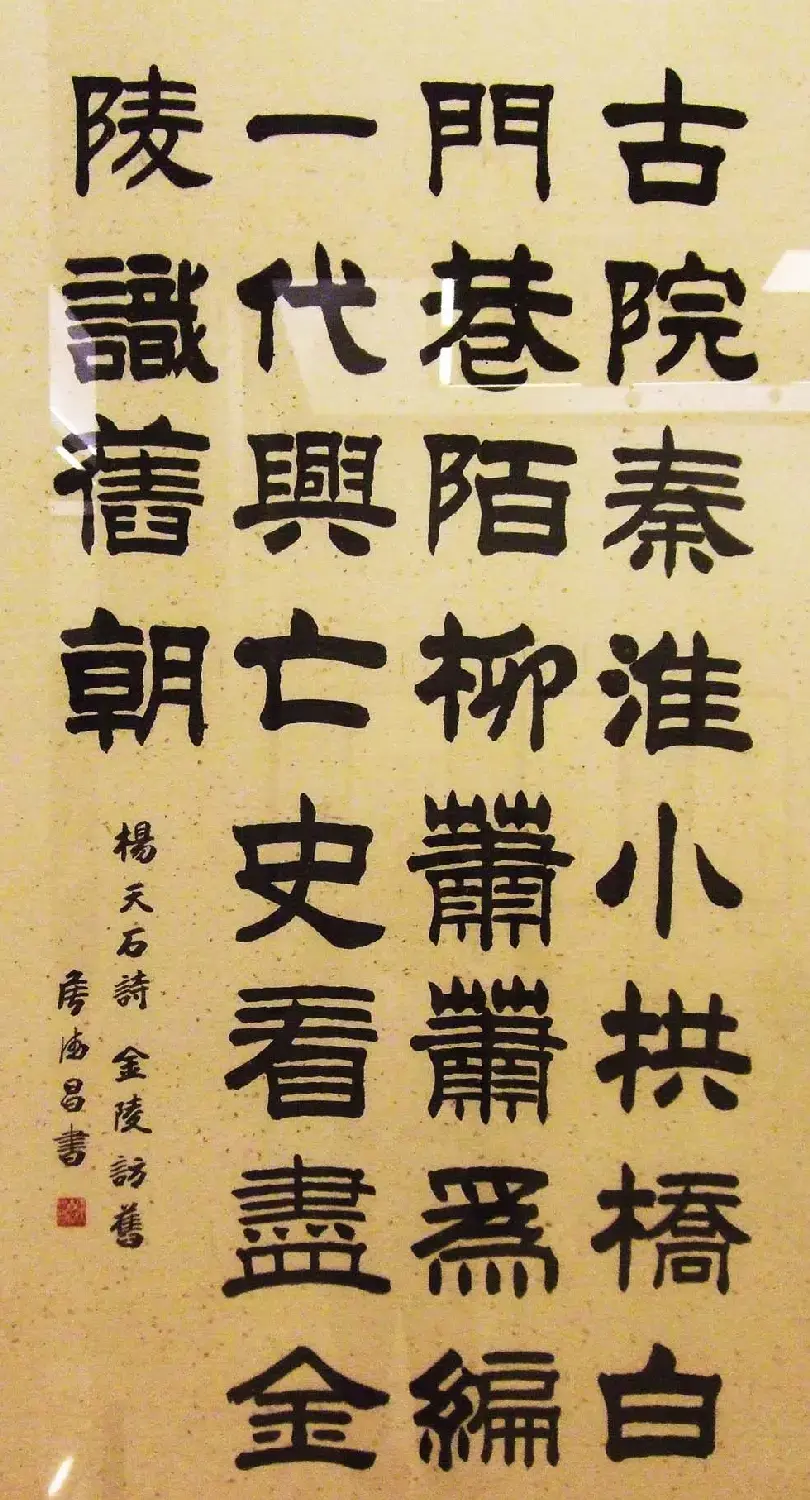 古院秦淮小拱橋白
門巷陌柳蕭蕭為編
一代興亡史看盡金
陵識舊朝
楊天石詩 金陵訪舊
昌書